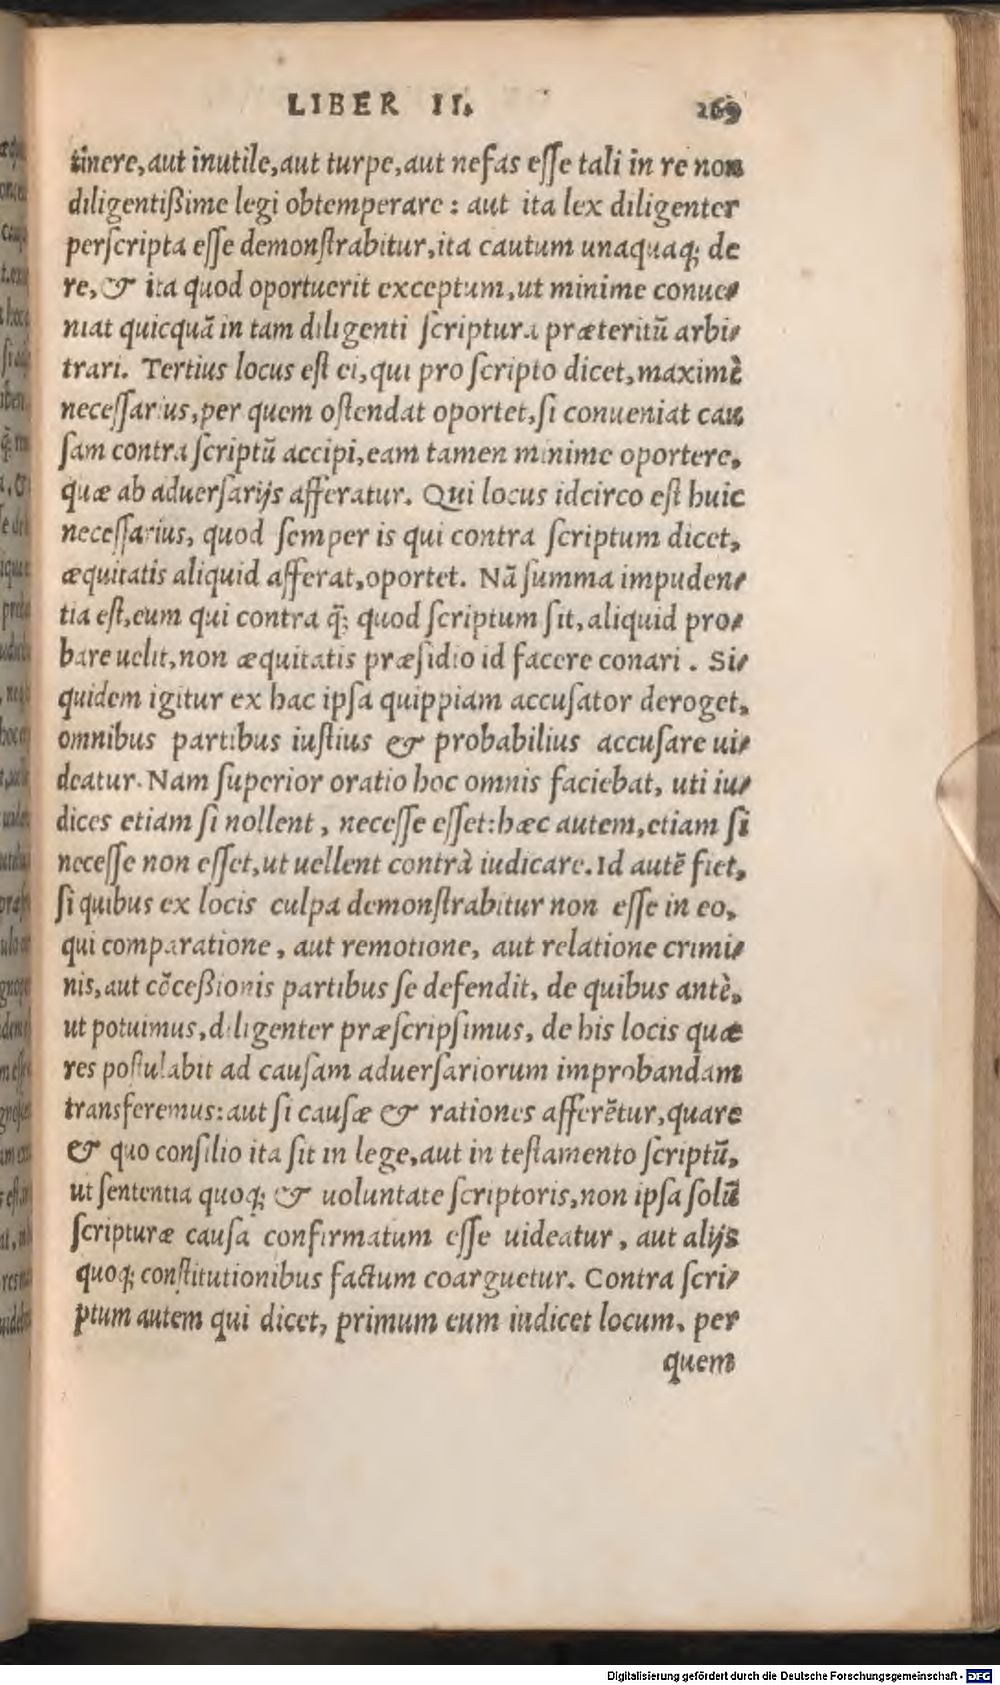 LIBER II. 269
tinere, aut inutile, aut turpe, aut nefas eſſe tali in re non
diligentißime legi obtemperare: aut ita lex diligenter
perſcripta eſſe demonſtrabitur, ita cautum unaquaq; de
re, & ita quod oportuerit exceptum, ut minime conue-
niat quicquã in tam diligenti ſcriptura præteritũ arbi-
trari. Tertius locus eſt ei, qui pro ſcripto dicet, maximè
neceſſarius, per quem oſtendat oportet, ſi conueniat cau
ſam contra ſcriptũ accipi, eam tamen minime oportere,
quæ ab aduerſarijs afferatur. Qui locus idcirco eſt huic
neceſſarius, quod ſemper is qui contra ſcriptum dicet,
æquitatis aliquid afferat, oportet. Nã ſumma impuden-
tia eſt, eum qui contra q̃; quod ſcriptum ſit, aliquid pro-
bare uelit, non æquitatis præſidio id facere conari. Si-
quidem igitur ex hac ipſa quippiam accuſator deroget,
omnibus partibus iuſtius & probabilius accuſare ui-
deatur. Nam ſuperior oratio hoc omnis faciebat, uti iu-
dices etiam ſi nollent, neceſſe eſſet: hæc autem, etiam ſi
neceſſe non eſſet, ut uellent contrà iudicare. Id autẽ fiet,
ſi quibus ex locis culpa demonſtrabitur non eſſe in eo,
qui comparatione, aut remotione, aut relatione crimi-
nis, aut cõceßionis partibus ſe defendit, de quibus antè,
ut potuimus, diligenter præſcripſimus, de his locis quæ
res poſtulabit ad cauſam aduerſariorum improbandam
transferemus: aut ſi cauſæ & rationes afferẽtur, quare
& quo conſilio ita ſit in lege, aut in teſtamento ſcriptũ,
ut ſententia quoq; & uoluntate ſcriptoris, non ipſa ſolũ
ſcripturæ cauſa confirmatum eſſe uideatur, aut alijs
quoq; conſtitutionibus factum coarguetur. Contra ſcri-
ptum autem qui dicet, primum eum iudicet locum, per
quem
Digitalisierung gefördert durch die Deutsche Forschungsgemeinschaft - DFG